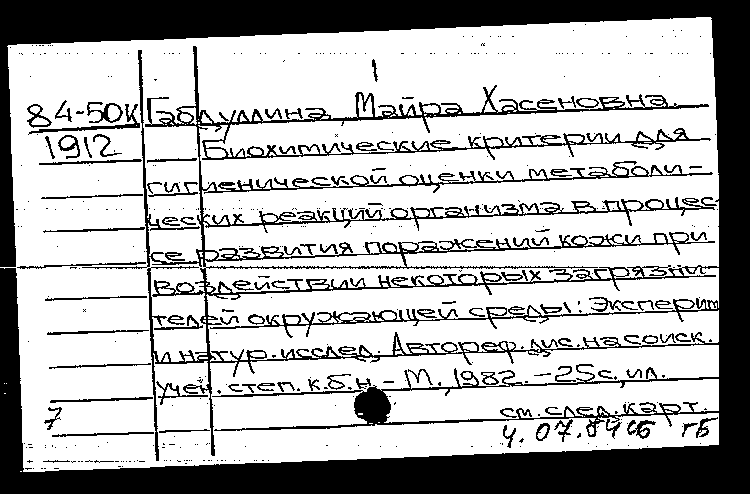 1
84-50К Габдуллина, Майра Хасеновна.
1912 Биохимические критерии для
гигиенической оценки метаболи-
ческих реакций организма в процес-
се развития поражений кожи при
воздействии некоторых загрязни-
телей окружающей среды: Эксперим
и натур. исслед. Автореф. дис. на соиск.
учен. степ. к. б. н. - М., 1982. - 25 с., ил.
7 см. след. карт.
4. 07. 84 гБ